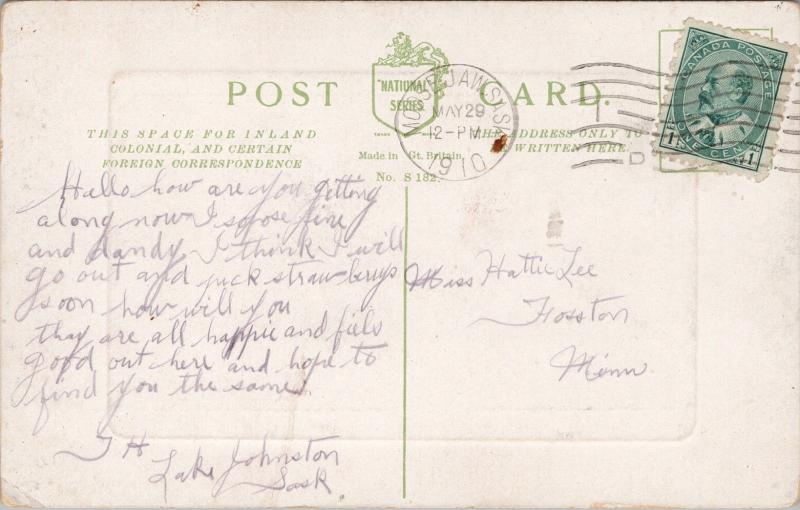 POST CARD.
NATIONAL
SERIES
THIS SPACE FOR INLAND
COLONIAL, AND CERTAIN
FOREIGN CORRESPONDENCE
THE ADDRESS ONLY TO
WRITTEN HERE.
Made in Gt. Britain.
No. S 182.
MOOSE JAW SASK
MAY 29
12-PM
1910
CANADA POSTAGE
ONE CENT
1 1
Hallo how are you getting
along now I spose fine
and dandy I think I will
go out and pick straw berrys
soon how will you
thay are all happie and feels
good out here and hope to
find you the same.
J H
Lake Johnston
Sask.
Miss Hattie Lee
Fosston
Minn.